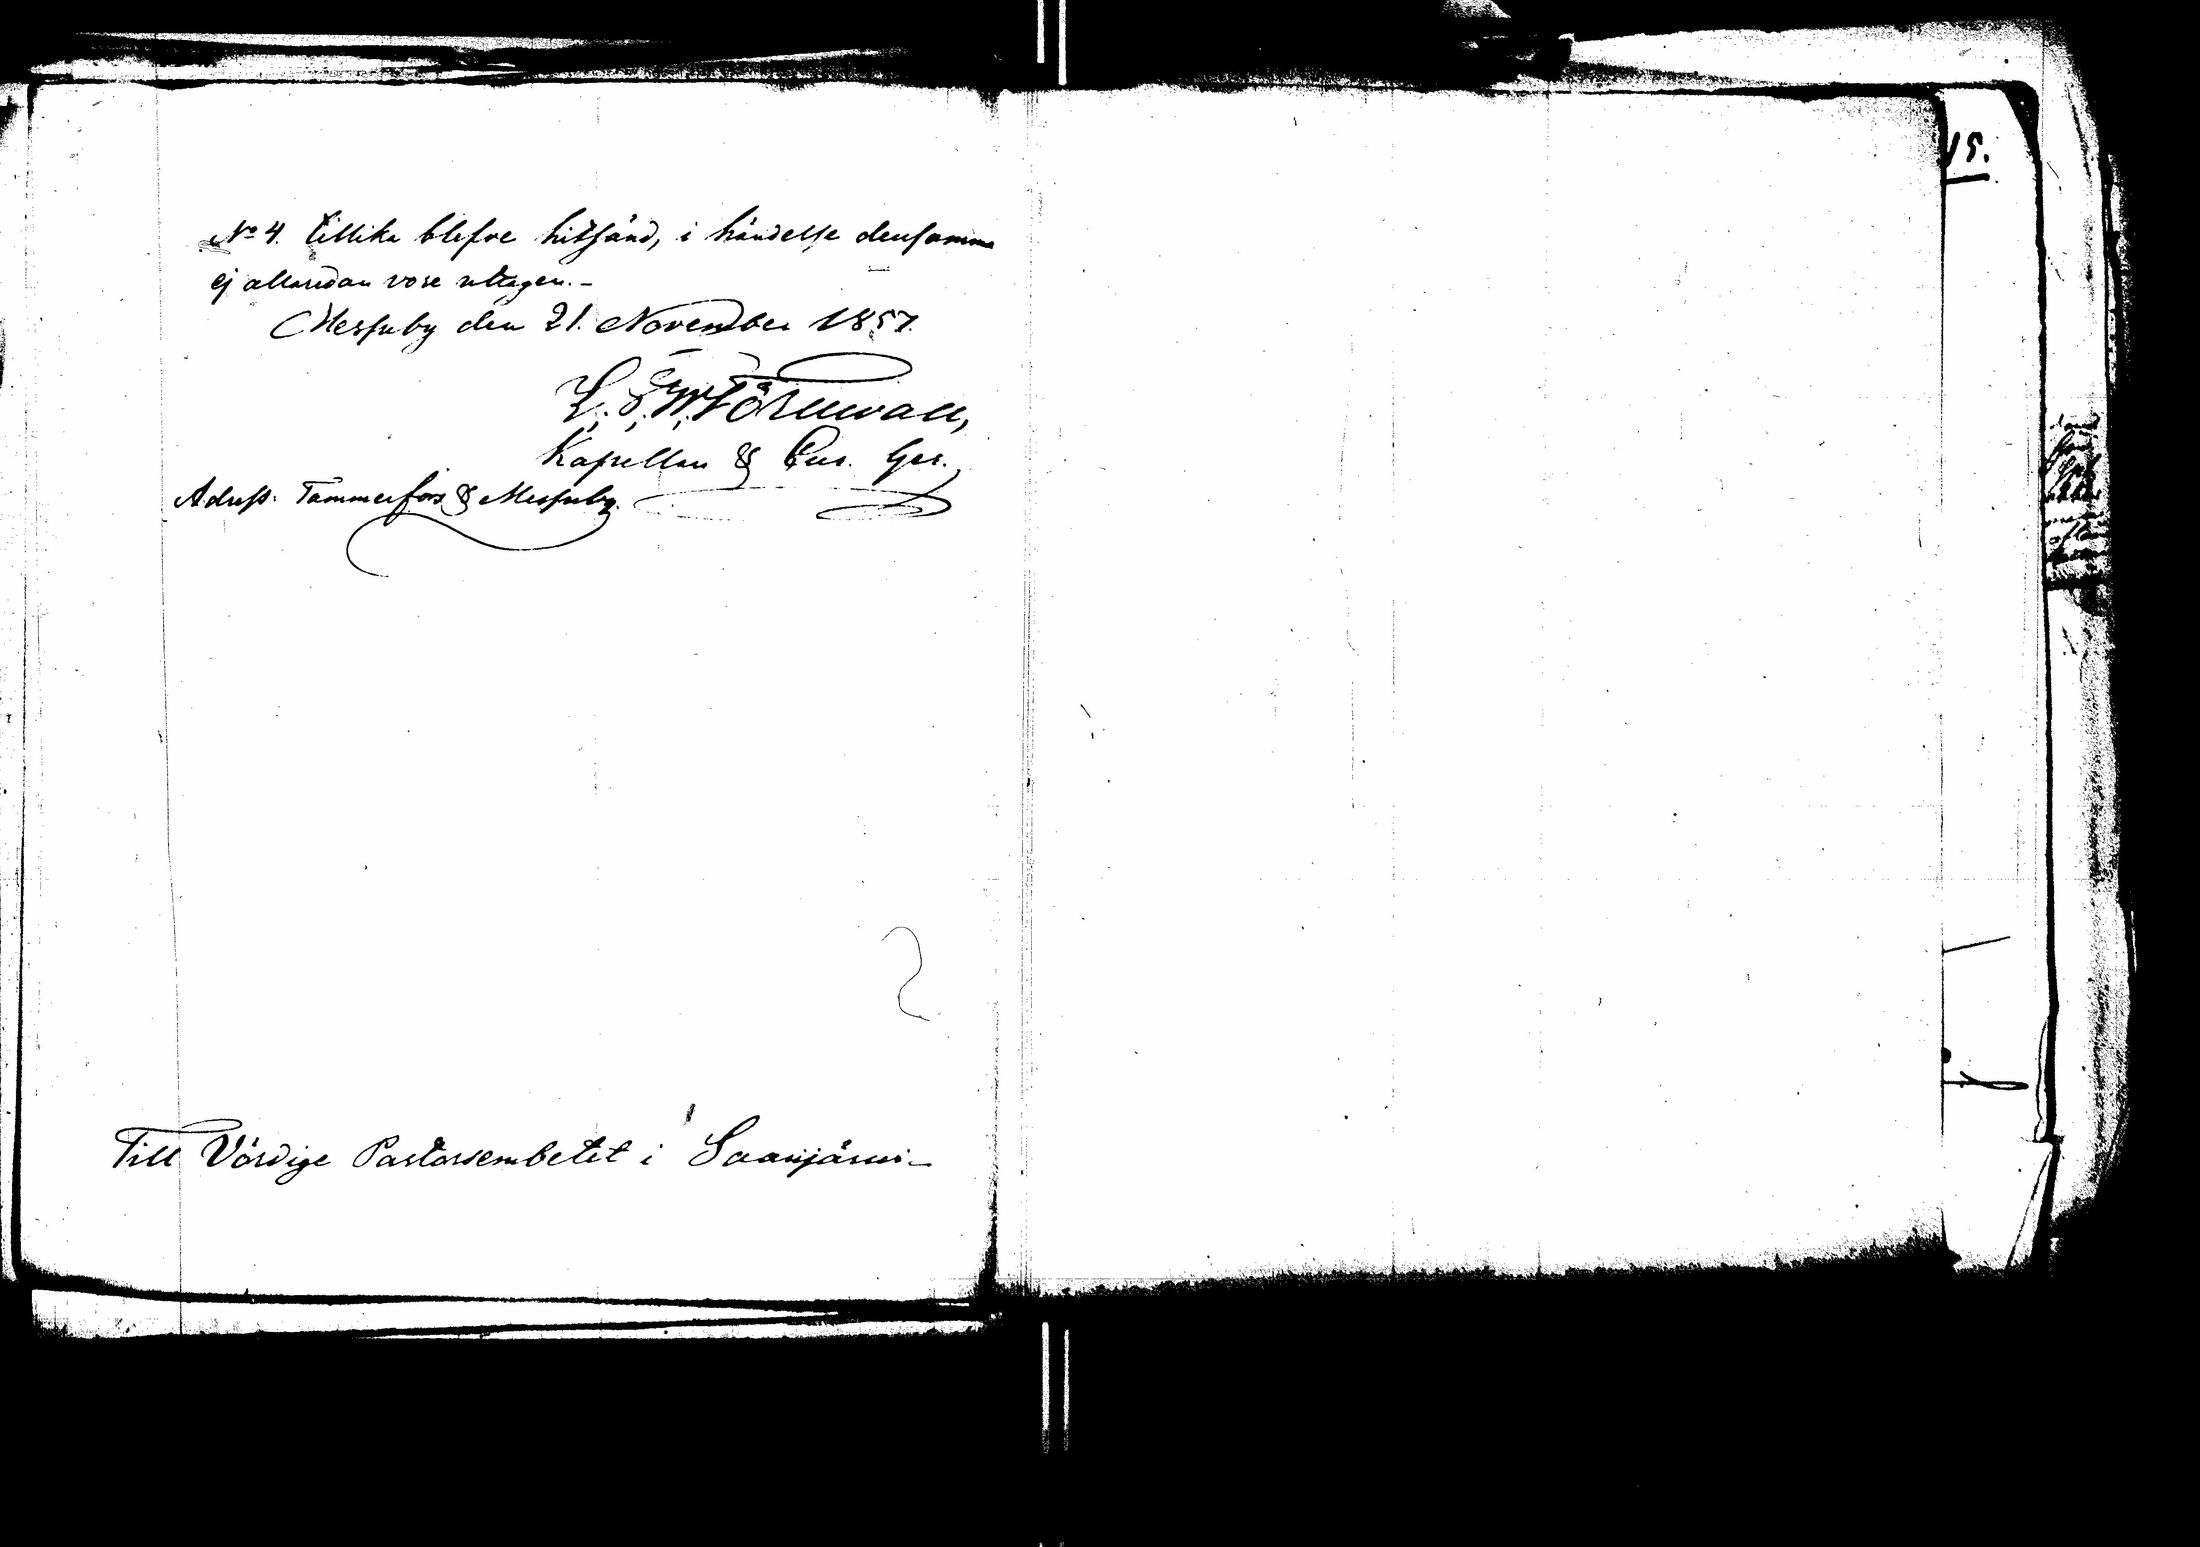 No 4. tillika blefve hitsänd, i händelse densamma
ej allaredan vore uttagen.-
Messuby den 21. November 1857.
Kapellan & Cur. Ger.
Adress: Tammerfors & Messuby.
Till Vördige Pastorsembetet i Saarijärvi-
15.